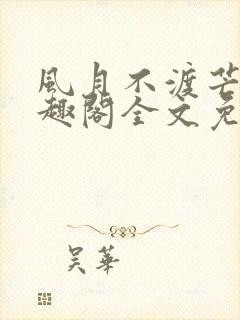 風月不渡芒
趣閣全文免
吴華